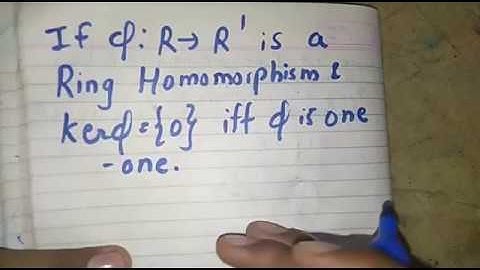 If φ: R→ R' is a
Ring Homomorphism &
kerφ = {0} iff φ is one
-one.